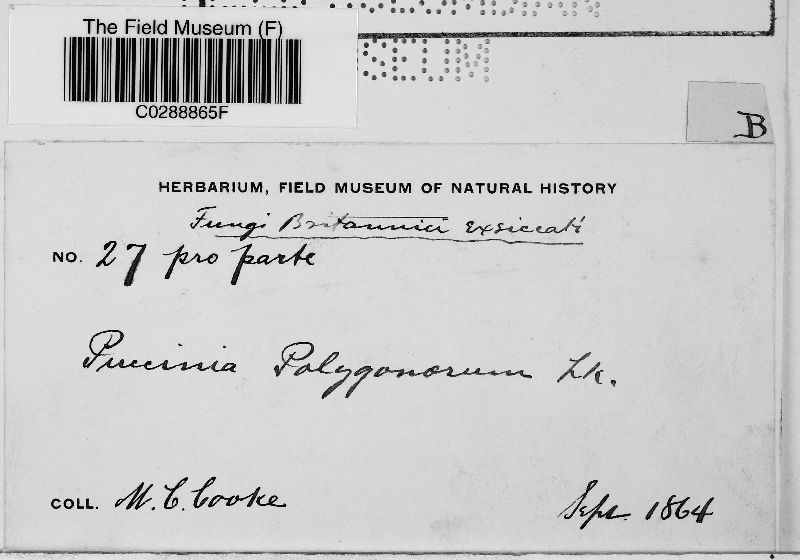 The Field Museum (F)
C0288865F
SEUM
B
HERBARIUM, FIELD MUSEUM OF NATURAL HISTORY
Fungi Britannici exsiccati
NO. 27 pro parte
Puccinia Polygonorum Lk.
COLL. M. C. Cooke
Sept. 1864